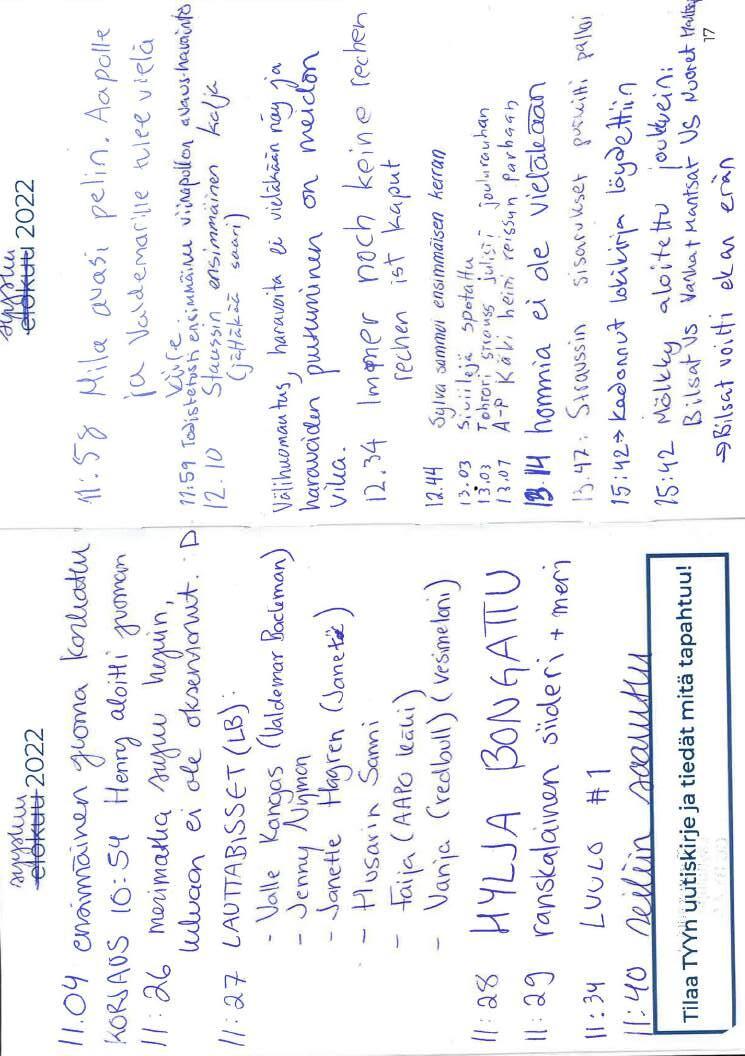 syyskuu
elokuu 2022
11.04 ensimmäinen juoma korkattu
KORJAUS 10:54 Henry aloitti juoman
11:26 merimatka sujuu hyvin,
kukaan ei ole oksentanut. :D
11:27 LAUTTABISSET (LB):
- Valle Kangas (Valdemar Backman)
- Jenny Nyman
- Janette Hagren (Janet)
- Husarin Sanni
- Taija (AAPO Käki)
- Vanja (redbull) (vesimeloni)
11:28 HYLJA BONGATTU
11:29 ranskalainen siideri + meri
11:34 LUULO #1
11:40 seiliin saavuttu
Tilaa TYYn uutiskirje ja tiedät mitä tapahtuu!
syyskuu
elokuu 2022
11:58 Mila avasi pelin. Aapolle
ja Valdemarille tulee vielä
kiire.
11:59 Todistetusti ensimmäinen viinapullon avaus-havainto
12.10 Staussin ensimmäinen kalja
(jättäkää saari)
Välihuomautus, haravoita ei vieläkään näy ja
haravoiden puttuminen on meidän
vika.
12.34 Immer noch keine rechen
rechen ist kaput
12.44 Sylva sammui ensimmäisen kerran
13.03 Siviilejä spotattu
13.03 Tohtori Strauss julisti joulurauhan
13.07 A-P Käki heini reissun parhaan
13.14 hommia ei ole vieläkään
13.47: Straussin sisarukset pallo
15:42 → Kadonnut lokikirja löydettiin
15:42 Mölkky aloitettu joukkuein:
Bilsat vs Vanhat Mantsat VS Nuoret
→ Bilsat voitti ekan erän
17